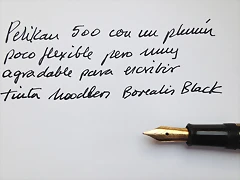 Pelikan 500 con un plumín
poco flexible pero muy
agradable para escribir
tinta Noodlers Borealis Black